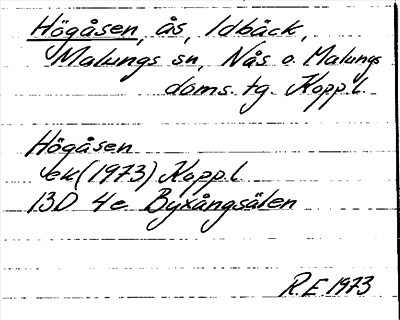 Högåsen, ås, Idbäck,
Malungs sn, Nås o. Malungs
doms. tg. Kopp.l.
Högåsen
ek (1973) Kopp.l
13D 4e Byxångsälen
R.E. 1973